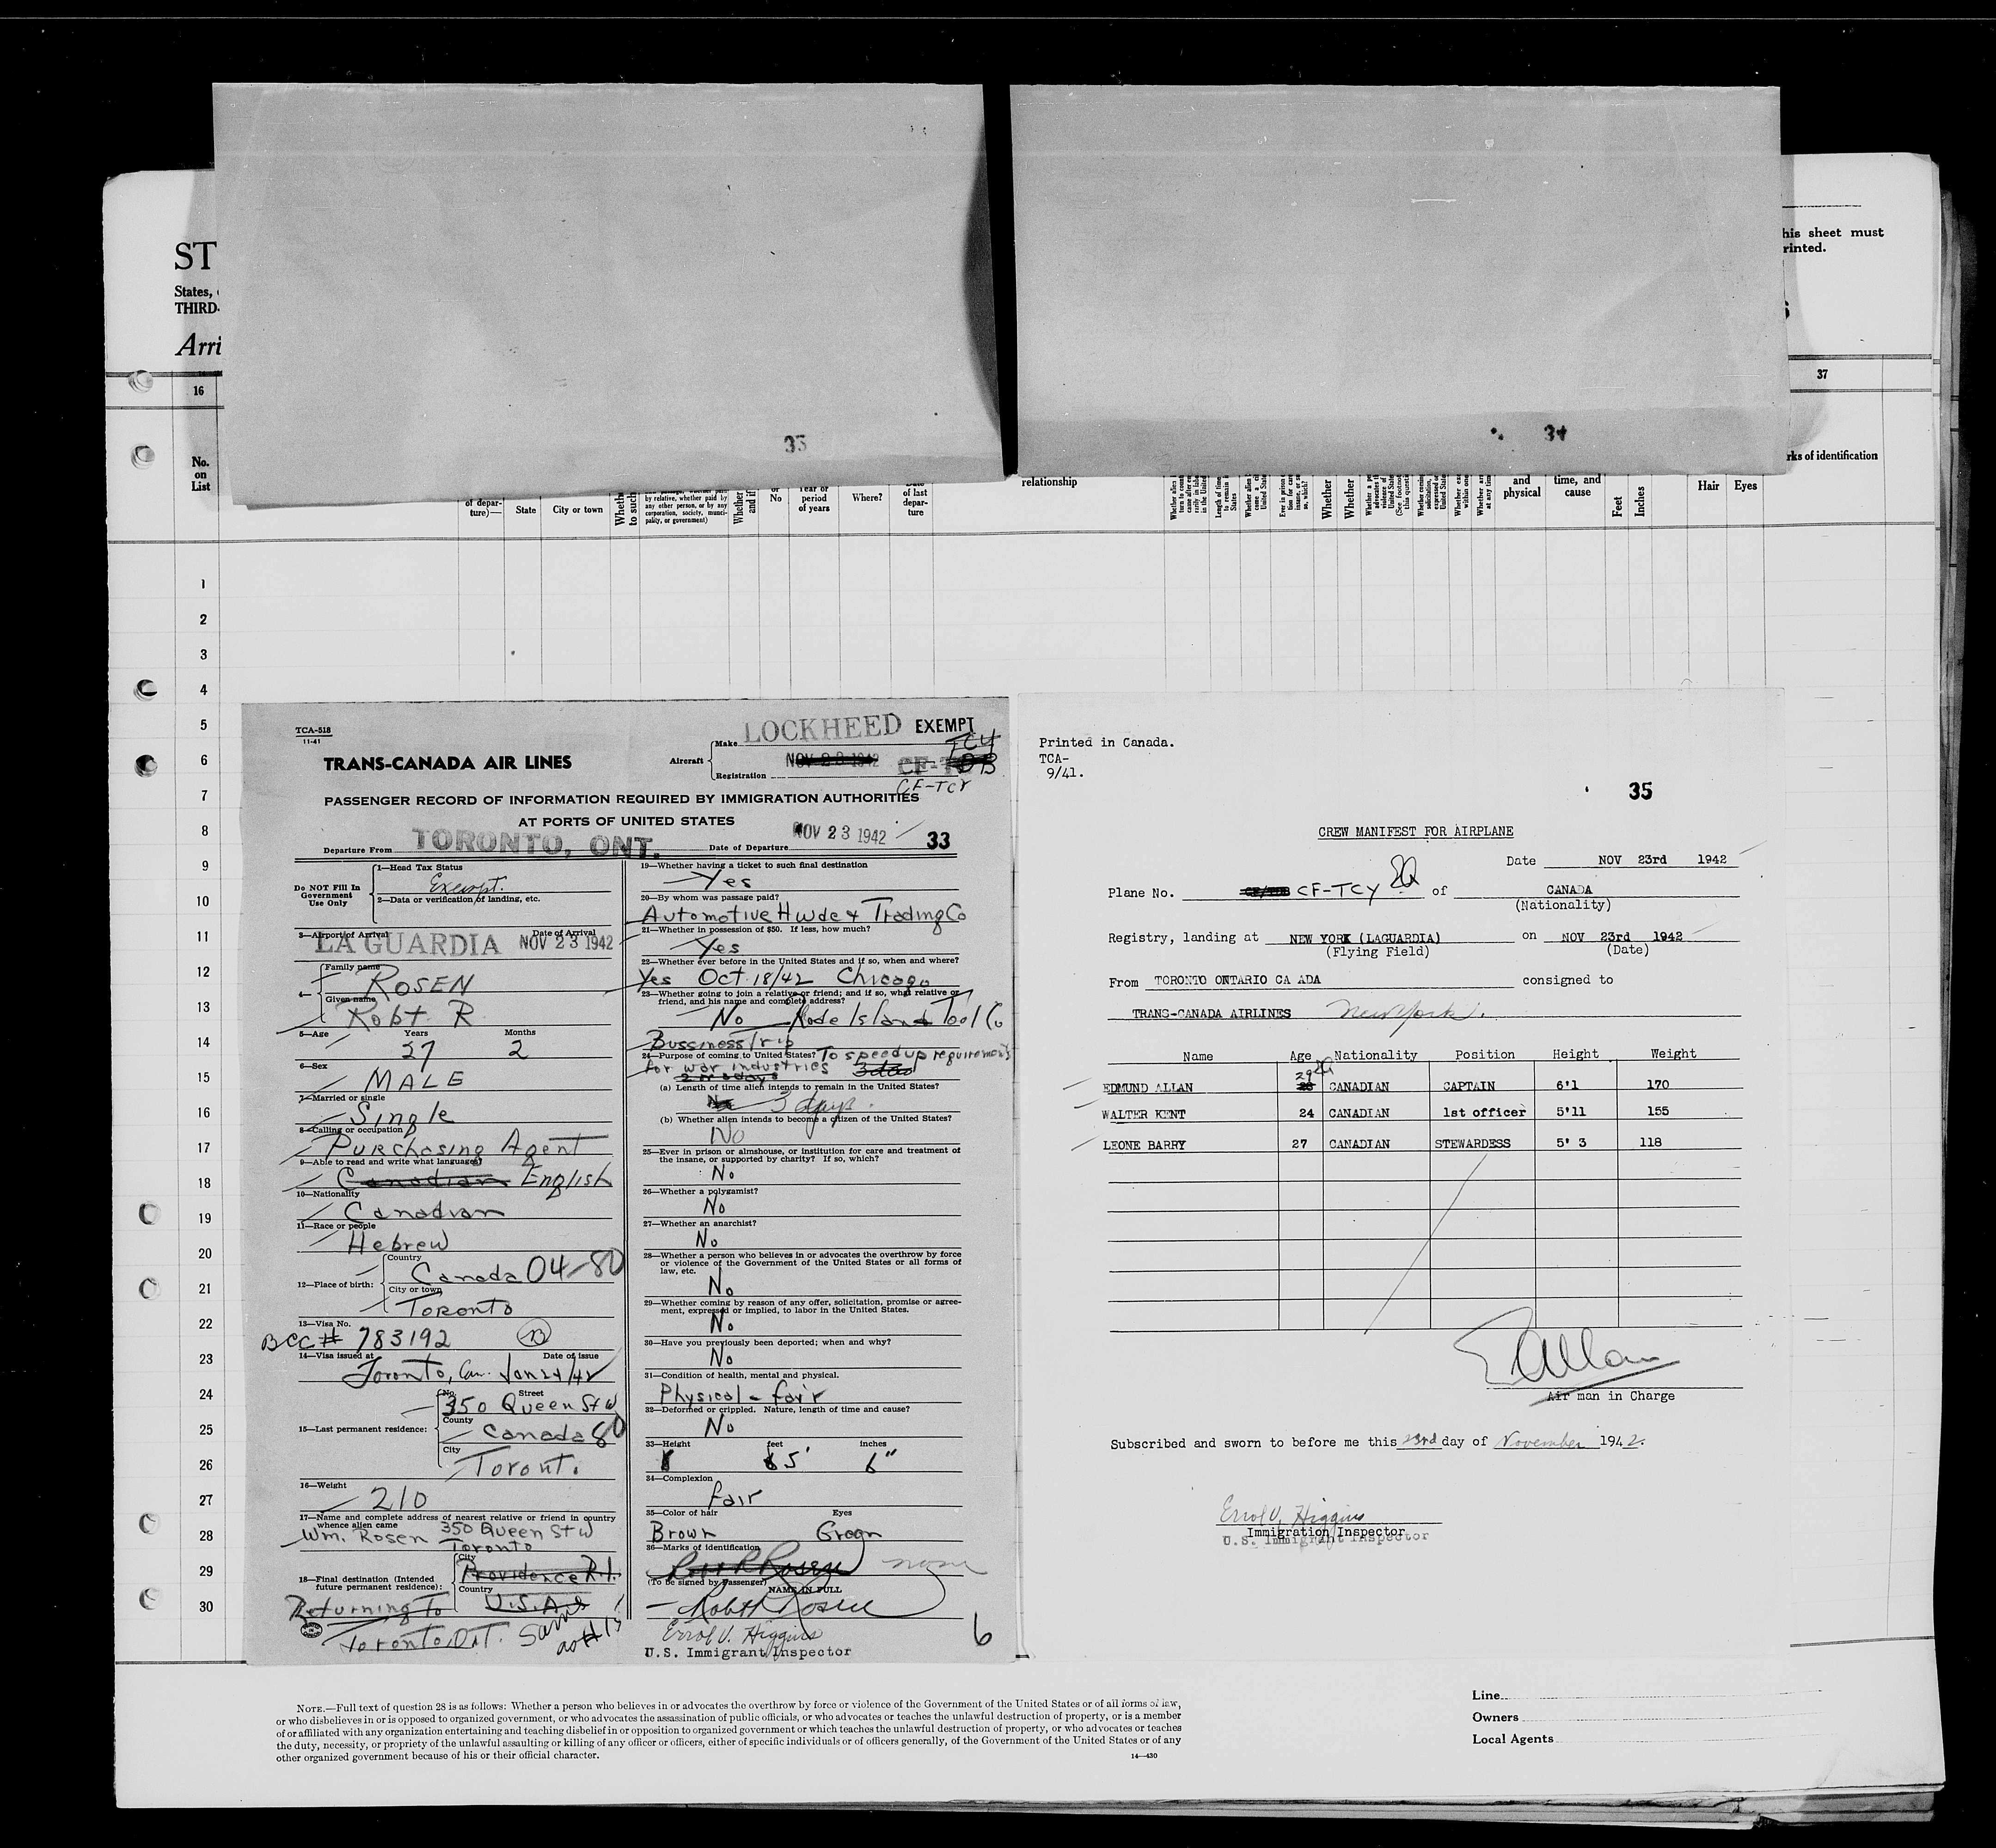 33
34
ST
States,
THIRD-
Arri
his sheet must
rinted.
16
37
No.
on
List
of depar-
ture)—
State
City or town
by relative, whether paid by
any other person, or by any
corporation, society, munici-
pality, or government)
No
Year or
period
of years
Where?
of last
depar-
ture
relationship
and
physical
time, and
cause
Feet
Inches
Hair
Eyes
rks of identification
1
2
3
4
5
6
7
8
9
10
11
12
13
14
15
16
17
18
19
20
21
22
23
24
25
26
27
28
29
30
TCA-518
11-41
LOCKHEED EXEMPT
TRANS-CANADA AIR LINES
Aircraft
Make
TCY
NOV 23 1942 CF-T
Registration
CF-TCY
PASSENGER RECORD OF INFORMATION REQUIRED BY IMMIGRATION AUTHORITIES
AT PORTS OF UNITED STATES
Departure From TORONTO, ONT. Date of Departure NOV 23 1942 33
Do NOT Fill In
Government
Use Only
1—Head Tax Status
Exempt.
2—Data or verification of landing, etc.
3—Airport of Arrival Date of Arrival
LA GUARDIA NOV 23 1942
4—
Family name
ROSEN
Given name
Robt R
5—Age Years Months
27 2
6—Sex
MALE
7—Married or single
Single
8—Calling or occupation
Purchasing Agent
9—Able to read and write what languages?
Canadian English
10—Nationality
Canadian
11—Race or people
Hebrew
12—Place of birth:
Country
Canada 04-80
City or town
Toronto
13—Visa No.
BCC# 783192 B
14—Visa issued at Date of issue
Toronto, Can. Jan 24/42
15—Last permanent residence:
No. Street
350 Queen St W
County
Canada 80
City
Toront.
16—Weight
210
17—Name and complete address of nearest relative or friend in country
whence alien came
Wm. Rosen 350 Queen St W
Toronto
18—Final destination (Intended
future permanent residence):
City
Providence R.I.
Country
U.S.A.
Returning to
Toronto, Ont. Same
as # 15
19—Whether having a ticket to such final destination
Yes
20—By whom was passage paid?
Automotive Hwde & Trading Co
21—Whether in possession of $50. If less, how much?
Yes
22—Whether ever before in the United States and if so, when and where?
Yes Oct. 18/42 Chicago
23—Whether going to join a relative or friend; and if so, what relative or
friend, and his name and complete address?
No Rode Island Tool Co
Bussiness Trip
24—Purpose of coming to United States? To speed up requirements
for war industries
(a) Length of time alien intends to remain in the United States?
3 days.
(b) Whether alien intends to become a citizen of the United States?
No
25—Ever in prison or almshouse, or institution for care and treatment of
the insane, or supported by charity? If so, which?
No
26—Whether a polygamist?
No
27—Whether an anarchist?
No
28—Whether a person who believes in or advocates the overthrow by force
or violence of the Government of the United States or all forms of
law, etc.
No
29—Whether coming by reason of any offer, solicitation, promise or agree-
ment, expressed or implied, to labor in the United States.
No
30—Have you previously been deported; when and why?
No
31—Condition of health, mental and physical.
Physical - fair
32—Deformed or crippled. Nature, length of time and cause?
No
33—Height feet inches
5' 6"
34—Complexion
fair
35—Color of hair Eyes
Brown Green
36—Marks of identification
none
(To be signed by Passenger) NAME IN FULL
Robt R Rosen
Errol V. Higgins
U.S. Immigrant Inspector
6
Printed in Canada.
TCA-
9/41.
35
CREW MANIFEST FOR AIRPLANE
Date NOV 23rd 1942
Plane No. CF-TCY of CANADA
(Nationality)
Registry, landing at NEW YORK (LAGUARDIA) on NOV 23rd 1942
(Flying Field) (Date)
From TORONTO ONTARIO CA ADA consigned to
TRANS-CANADA AIRLINES New York.
Name Age Nationality Position Height Weight
EDMUND ALLAN 29 CANADIAN CAPTAIN 6'1 170
WALTER KENT 24 CANADIAN 1st officer 5'11 155
LEONE BARRY 27 CANADIAN STEWARDESS 5' 3 118
E Allan
Air man in Charge
Subscribed and sworn to before me this 23rd day of November 1942.
Errol V. Higgins
Immigration Inspector
U.S. Immigrant Inspector
NOTE.—Full text of question 28 is as follows: Whether a person who believes in or advocates the overthrow by force or violence of the Government of the United States or of all forms of law,
or who disbelieves in or is opposed to organized government, or who advocates the assassination of public officials, or who advocates or teaches the unlawful destruction of property, or is a member
of or affiliated with any organization entertaining and teaching disbelief in or opposition to organized government or which teaches the unlawful destruction of property, or who advocates or teaches
the duty, necessity, or propriety of the unlawful assaulting or killing of any officer or officers, either of specific individuals or of officers generally, of the Government of the United States or of any
other organized government because of his or their official character.
14—430
Line
Owners
Local Agents